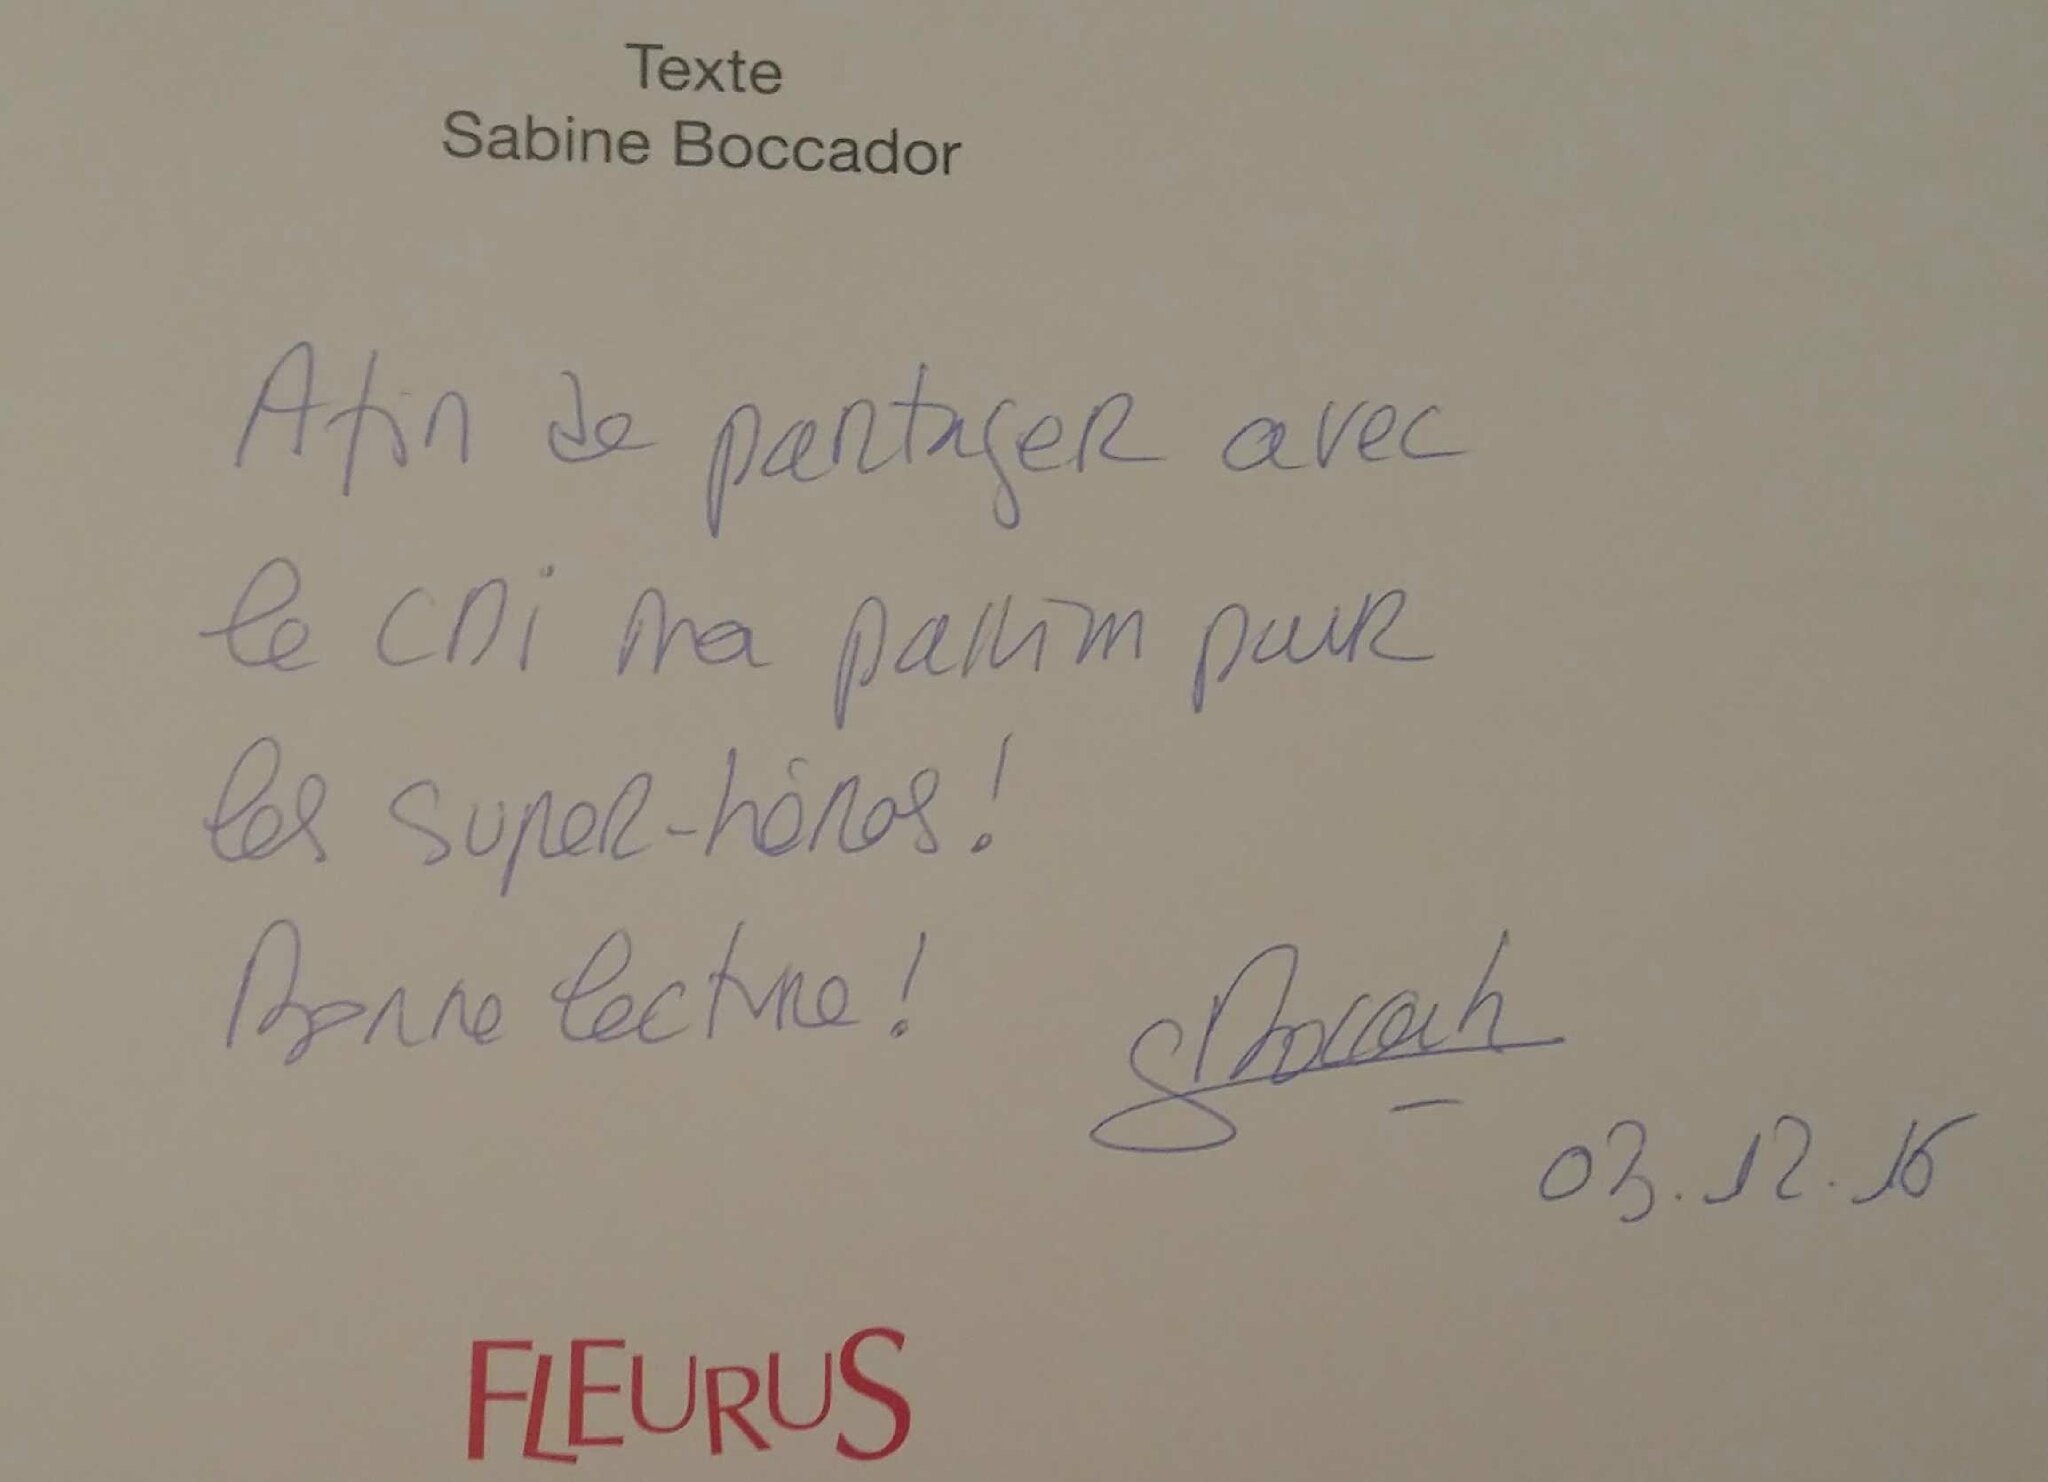 Texte
Sabine Boccador
Afin de partager avec
le CDI ma passion pour
les super-héros!
Bonne lecture!
SBoccador
03.12.16
FLEURUS